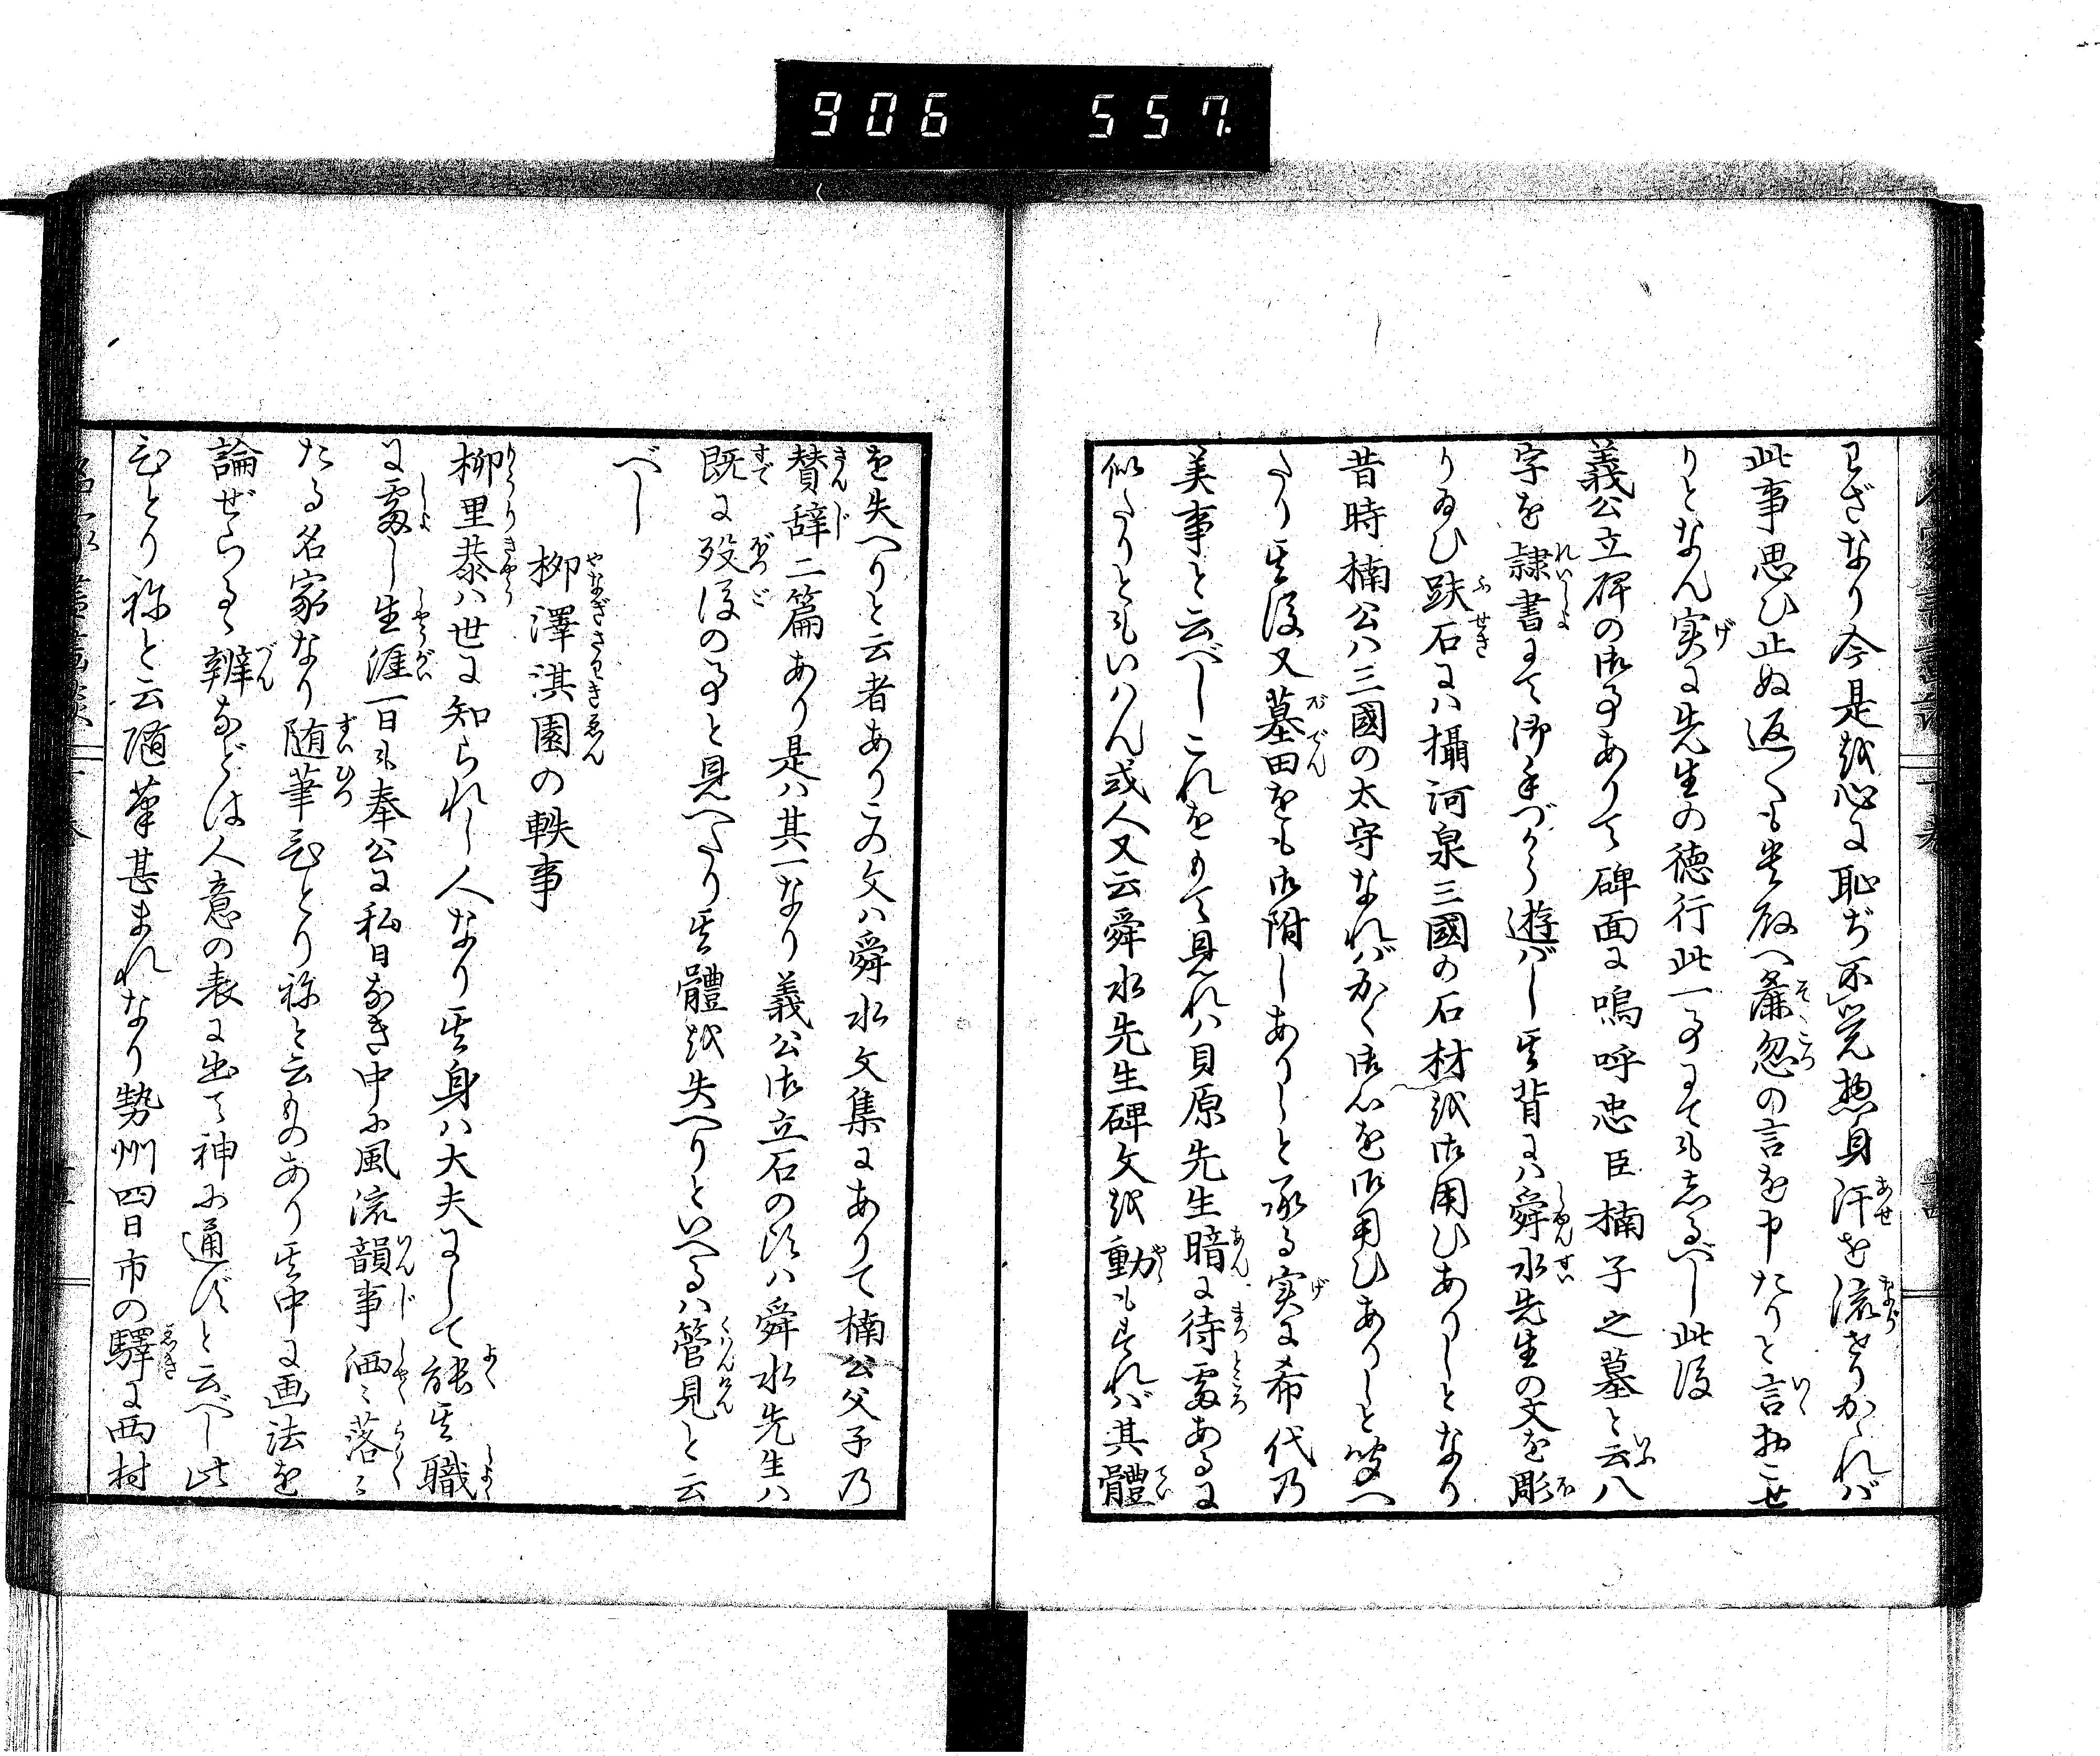 906 557.
わざなり今是を心に恥ぢ不覚惣身汗を流せりかゝれば
此事思ひ止ぬ返〱も貴殿へ麁忽の言を申たりと言おこせ
りとなん実に先生の徳行此一事にても志るべし此後
義公立碑の御事ありて碑面に嗚呼忠臣楠子之墓と云八
字を隷書にて御手づから遊ばし其背には舜水先生の文を彫
り玉ひ趺石には攝河泉三國の石材を御用ひありしとなり
昔時楠公は三國の太守なればかく御心を御用ひありしと聞へ
たり其後又墓田をも御附しありしと承る実に希代乃
美事と云べしこれをもて見れは貝原先生暗に待處あるに
似たりともいはん或人又云舜水先生碑文を動もすれば其體
を失へりと云者ありこの文は舜水文集にありて楠公父子乃
賛辞二篇あり是は其一なり義公御立石の頃は舜水先生は
既に歿後の事と見へたり其體を失へりといへるは管見と云
べし
柳澤淇園の軼事
柳里恭は世に知られし人なり其身は大夫にして能其職
に處し生涯一日も奉公に私日なき中に風流韻事洒〻落〻
たる名家なり随筆ひとり祢と云ものあり其中に画法を
論ぜらるゝ辨などは人意の表に出て神に通ずと云べし此
ひとり祢と云随筆甚まれなり勢州四日市の驛に西村